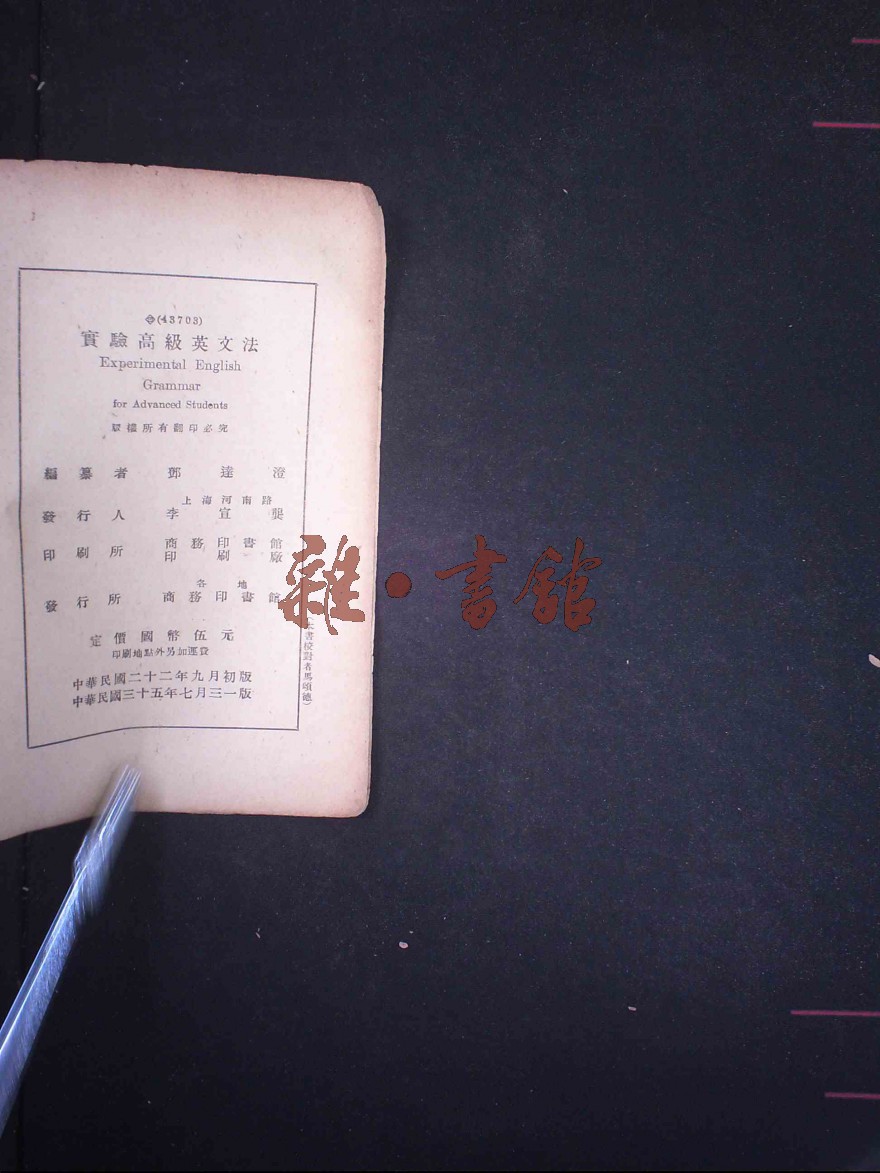 (43703)
實驗高級英文法
Experimental English
Grammar
for Advanced Students
版權所有翻印必究
編纂者 鄧達澄
上海河南路
發行人 李宣龔
印刷所 商務印書館
印刷廠
各地
發行所 商務印書館
定價國幣伍元
印刷地點外另加運費
中華民國二十二年九月初版
中華民國三十五年七月三一版
(本書校對者馬頌德)
雜·書館